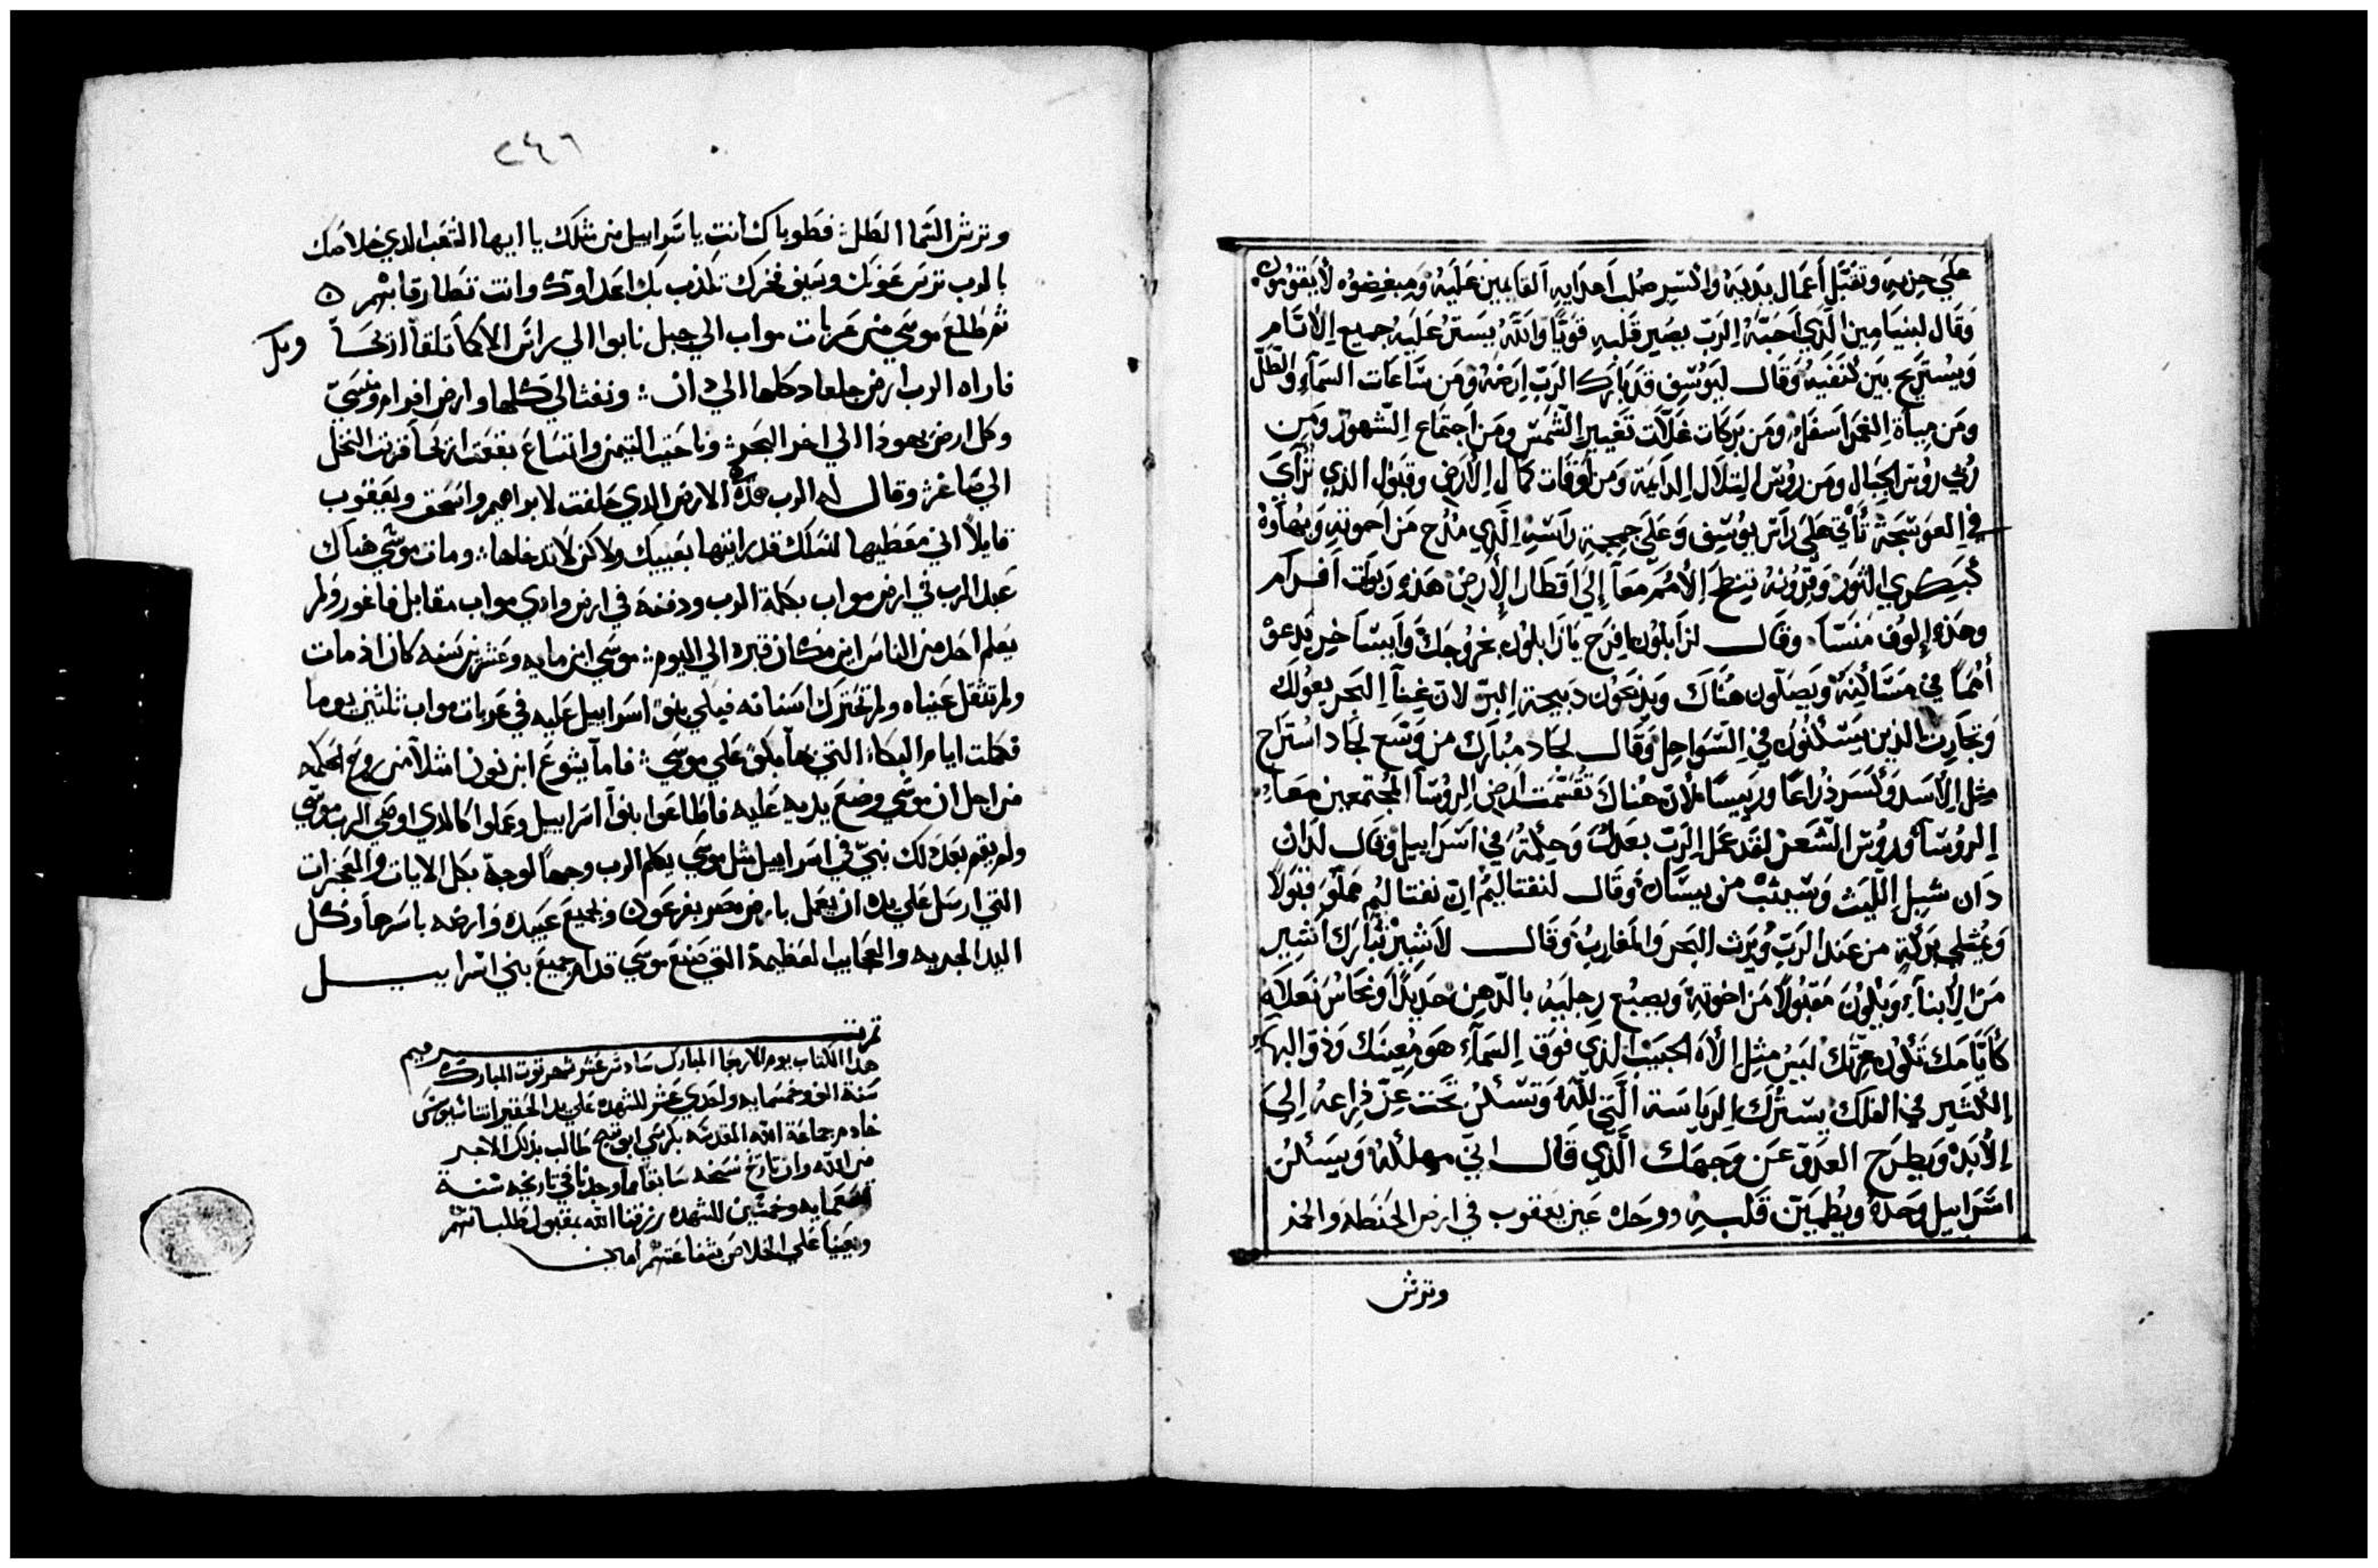 علي حزبه وتقبل اعمال يديه واكسر صلب اعدايه القايمين عليه ومبغضوه لا يقومون
وقال لبنيامين الذي احبه الرب يصير قلبه قويا والله يستر عليه جميع الايام
ويستريح بين كتفيه وقال ليوسف قد بارك الرب ارضه ومن ساعات السماء والطل
ومن مياة الغمر اسفل ومن بركات غلات تغيير الشمس ومن اجتماع الشهور ومن
روس الجبال ومن روس التلال الدايمة ومن اوقات كمال الارض وقبول الذي ترآي
في العوسجة تأتي علي راس يوسف وعلي جمجمة راسه الذي مدح من اخوته وبهاوة
كبكري الثور وقرونه ينطح الامم معا الي اقطار الارض هذه ربوات افرام
وهذه الوف منسا وقال لزابلون افرح يا زابلون بخروجك وايساخر يدعو
امما في مساكنه ويصلون هناك ويذبحون دبيحة البر لان غنآ البحر يعولك
وتجارت الذين يسكنون في السواحل وقال لجاد مبارك من وسع لجاد استراح
مثل الاسد وكسر ذراعا ورييسا لان هناك تقسمت ارض الروسآ المجتمعين معا
الروسآ وروس الشعب لقد عمل الرب بعدله وحكمته في اسراييل وقال لدان
دان شبل الليث وسيثب من بيسان وقال لنفتاليم ان نفتاليم مملو قبولا
وممتلي بركة من عند الرب ويرث البحر والمغارب وقال لاشير تبارك اشير
من الابناء ويكون مقبولا من اخوته ويصبغ رجليه بالدهن حديدا ونحاس نعلاه
كايامك تكون عزتك ليس مثل الاه الحبيب الذي فوق السمآء هو معينك وذو البهآ
الكثير في الفلك يسترك الرياسة التي لله وتسكن تحت عز ذراعه الي
الابد ويطرح العدو عن وجهك الذي قال اني مهلكه ويسكن
اسراييل وحده ويطمين قلبه ووحده عين يعقوب في ارض الحنطه والخمر
وترش
٢٤٦
وترش السما الطل فطوباك انت ياسراييل من مثلك يا ايها الشعب الدي خلاصك
بالرب ترس عونك وسيف فخرك تكذب بك اعداوك وانت تطا رقابهم
ثم طلع موسي من عربات مواب الي جبل نابوا الي راس الاكما تلقا اريحا وبكل
فاراه الرب ارض جلعاد كلها الي دان ونفتالي كلها وارض افرام ومنسي
وكل ارض يهودا الي اخر البحر وناحيت التيمن واتساع بقعت اريحا قرنت النخل
الي صاغر وقال له الرب هذه الارض الدي حلفت لابراهيم واسحق ويعقوب
قايلا اني معطيها لنسلك قد رايتها بعينيك ولاكن لا تدخلها ومات موسي هناك
عبد الرب في ارض مواب بكلمة الرب ودفنه في ارض وادي مواب مقابل فاغور ولم
يعلم احد من الناس اين مكان قبره الي اليوم موسي ابن مايه وعشرين سنه كان اذ مات
ولم تثقل عيناه ولم تتحرك اسنانه فبكي بنو اسراييل عليه في عربات مواب ثلثين يوما
فكملت ايام البكاء التي ها بكو علي موسي فاما يشوع ابن نون امتلا من روح الحكمه
من اجل ان موسي وضع يديه عليه فاطاعوا بنوا اسراييل وعملوا كالدي اوصي الرب موسي
ولم يقم بعد دلك نبي في اسراييل مثل موسي يكلم الرب وجها لوجه بكل الايات والمعجزات
التي ارسل علي يده ان يعمل بارض مصر بفرعون وبجميع عبيده وارضه باسرها وبكل
اليد الجديه والعجايب العظيمة التي صنع موسي قدام جميع بني اسراييل
تم
هدا الكتاب يوم الاربعا المبارك سادس عشر شهر توت المبارك
سنة الف وخمسمايه واحدي عشر للشهده علي يد الحقير اتناسيوس
خادم جماعة الله المقدسه بكرسي ابوتيج طالب بذلك الاجر
من الله وان تاريخ نسخه سابقا ما وجدنا في تاريخه سنة
تسعمايه وخمسين للشهده رزقنا الله بقبول طلباتهم
ويعينا علي الخلاص بشفاعتهم امين